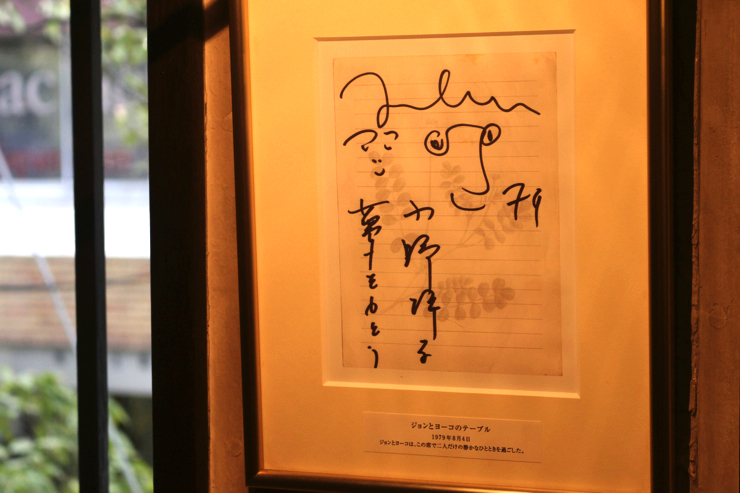 John
79
小野洋子
ジョンとヨーコのテーブル
1979年8月4日
ジョンとヨーコは、この席で二人だけの静かなひとときを過ごした。